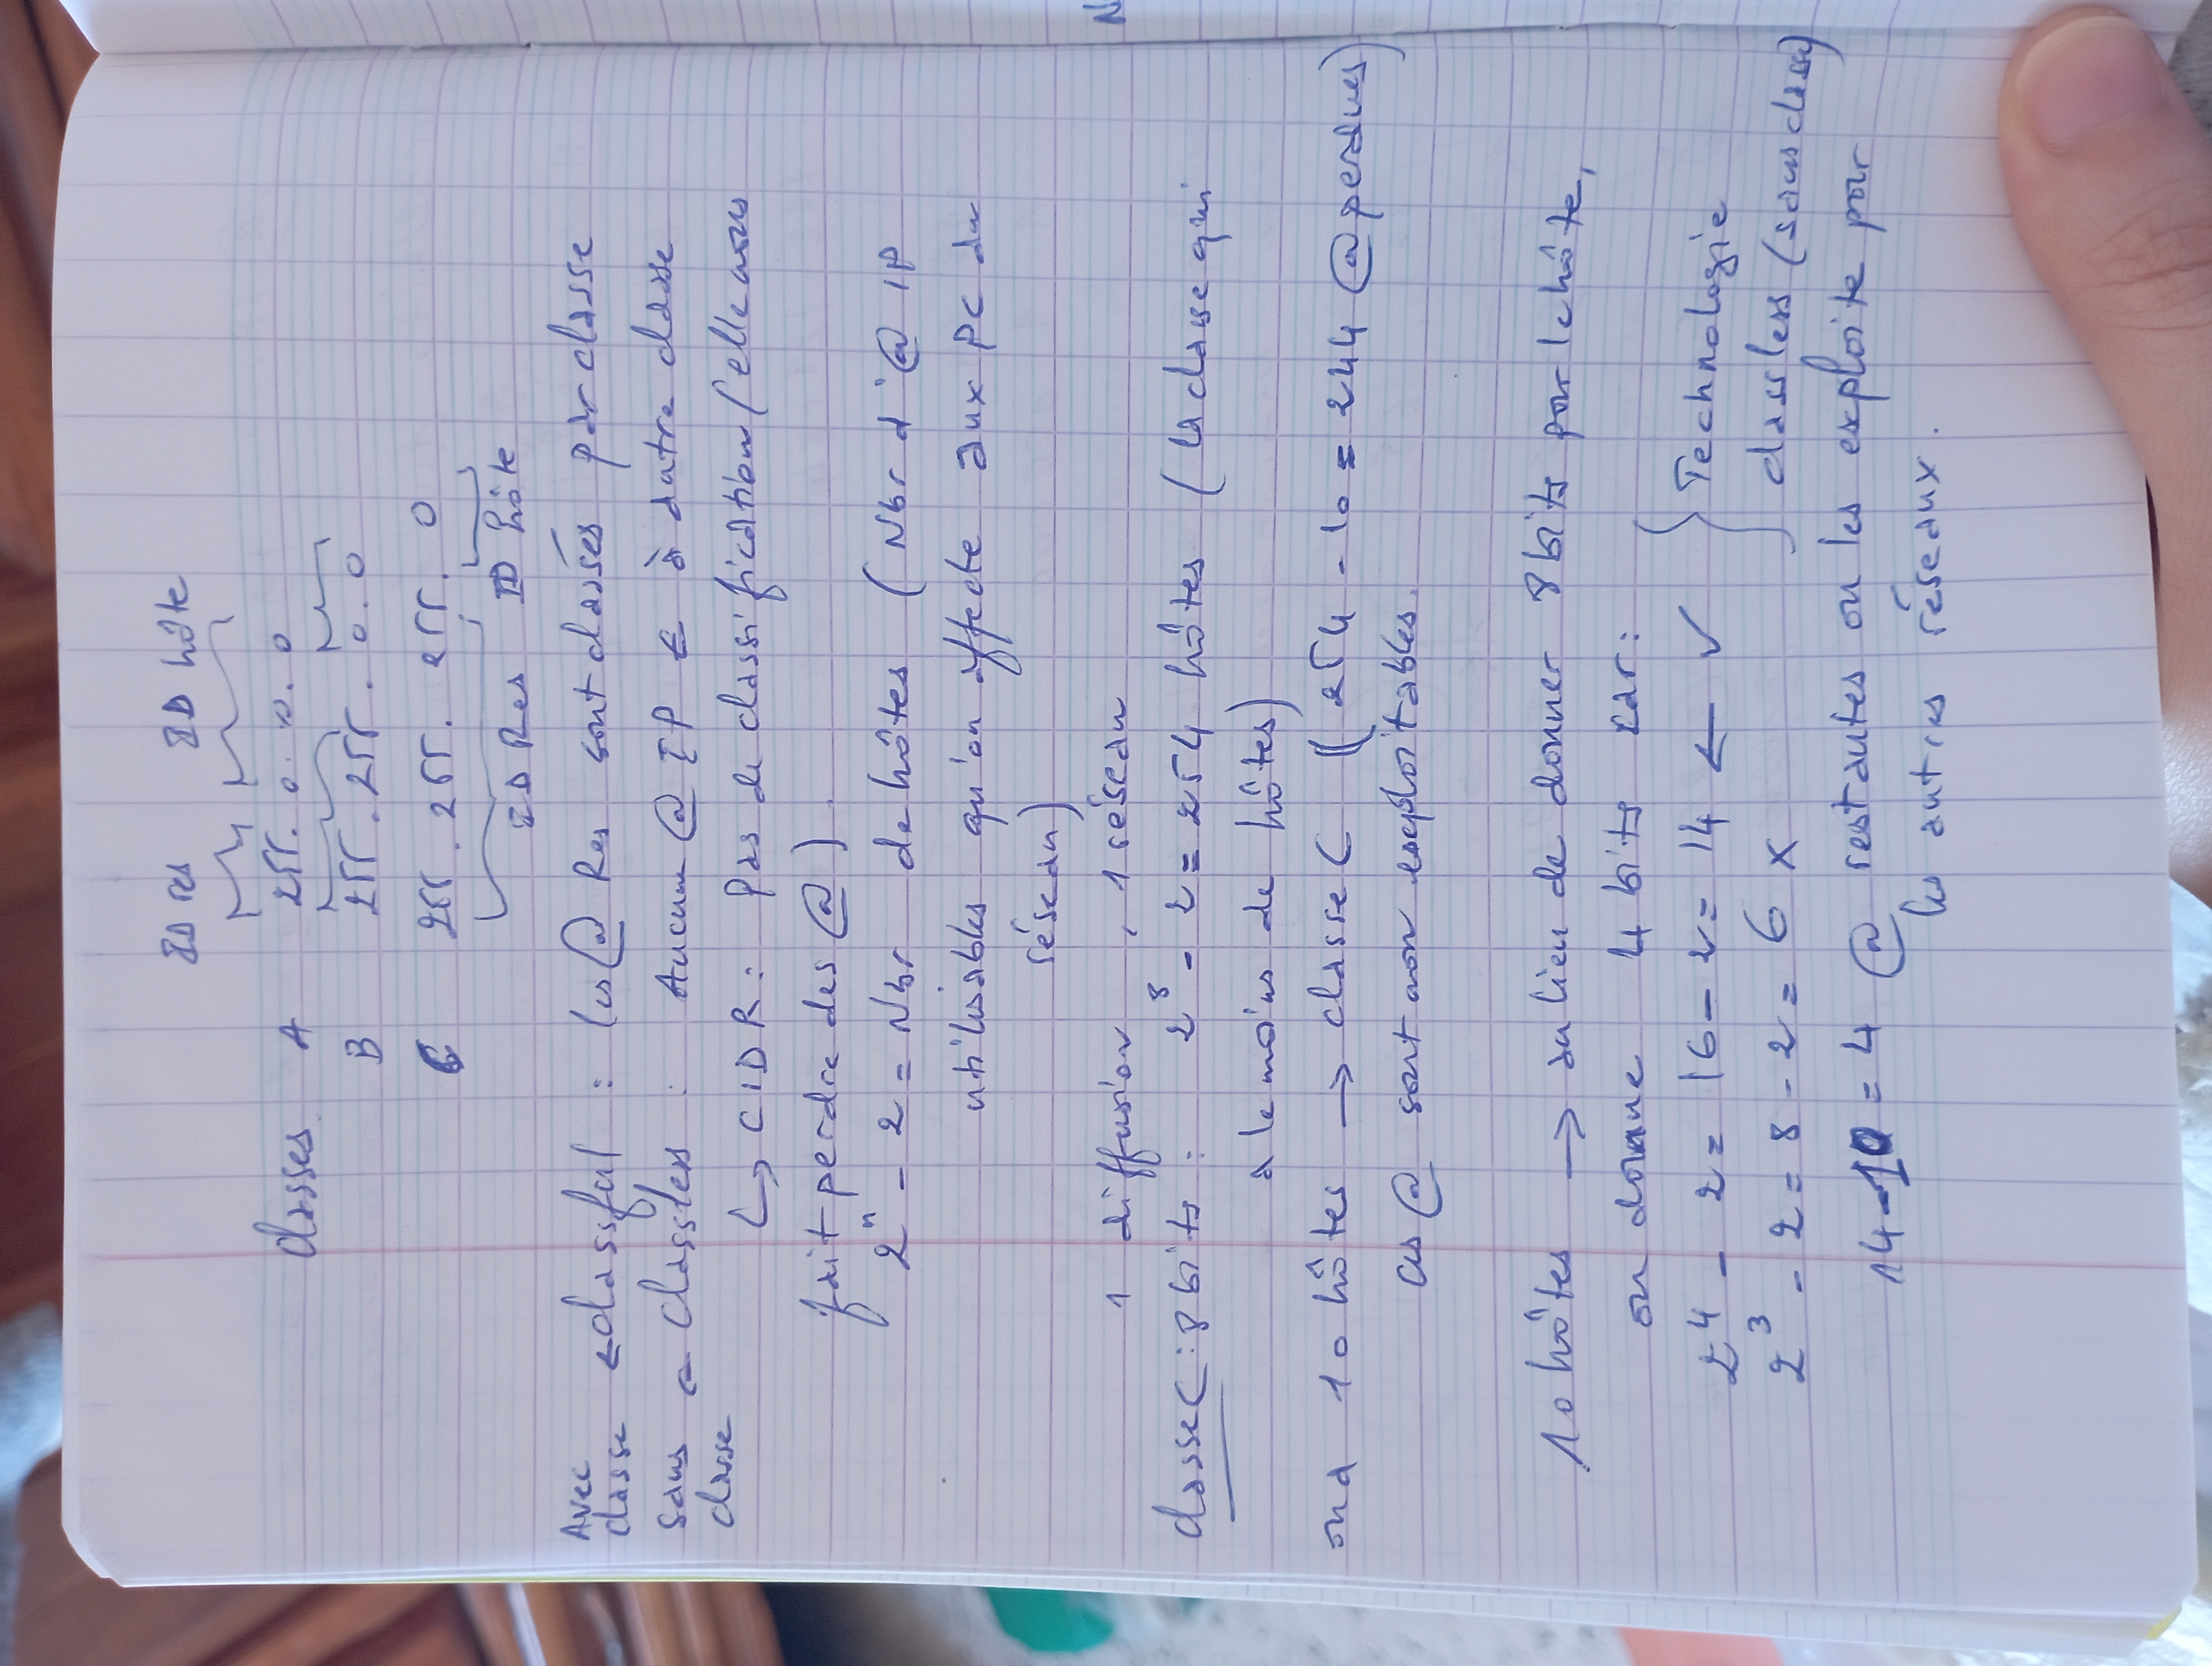 ID res ID hôte
classes A 255.0.0.0
B 255.255.0.0
C 255.255.255.0
ID Res ID hôte
Avec classe ← classful : les @ Res sont classés par classe
sans classe ← classless : Aucune @ IP ∈ à autre classe
↳ CIDR : Pas de classification (elle nous
fait perdre des @).
2ⁿ - 2 = Nbr de hôtes (Nbr d'@ IP
utilisables qu'on affecte aux Pc du
réseau)
1 diffusion, 1 réseau
classe C : 8 bits : 2⁸ - 2 = 254 hôtes (la classe qui
a le moins de hôtes)
on a 10 hôtes → classe C ((254 - 10 = 244 @ perdues)
ces @ sont non exploitables.
10 hôtes → au lieu de donner 8 bits pour le hôte,
on donne 4 bits car :
2⁴ - 2 = 16 - 2 = 14 ← ✓ } Technologie
2³ - 2 = 8 - 2 = 6 x } classless (sans classe)
14 - 10 = 4 @ restantes on les exploite pour
les autres réseaux.
N